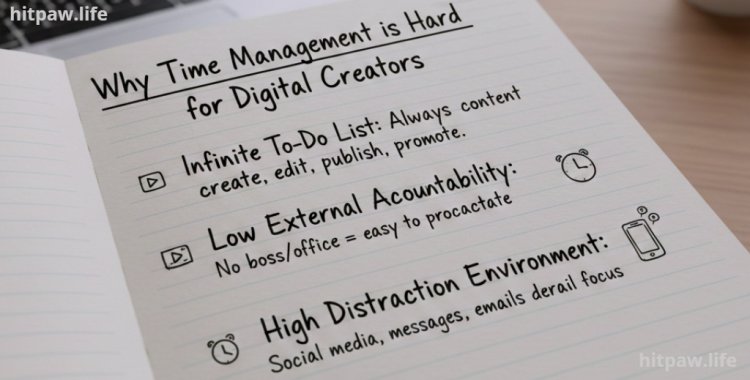 hitpaw.life
Why Time Management is Hard
for Digital Creators
Infinite To-Do List: Always content
create, edit, publish, promote.
Low External Acountability:
No boss/office = easy to procactate
High Distraction Environment:
Social media, messages, emails derail focus
hitpaw.life